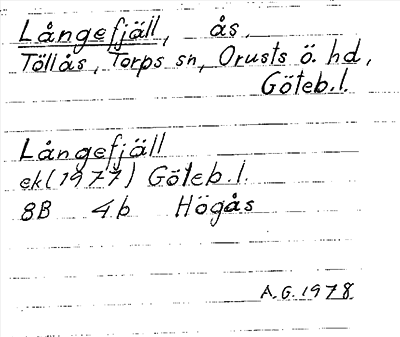 Långefjäll, ås.
Töllås, Torps sn, Orusts ö. hd,
Göteb.l.
Långefjäll
ek(1977) Göteb.l.
8B 4b Högås
A.G.1978